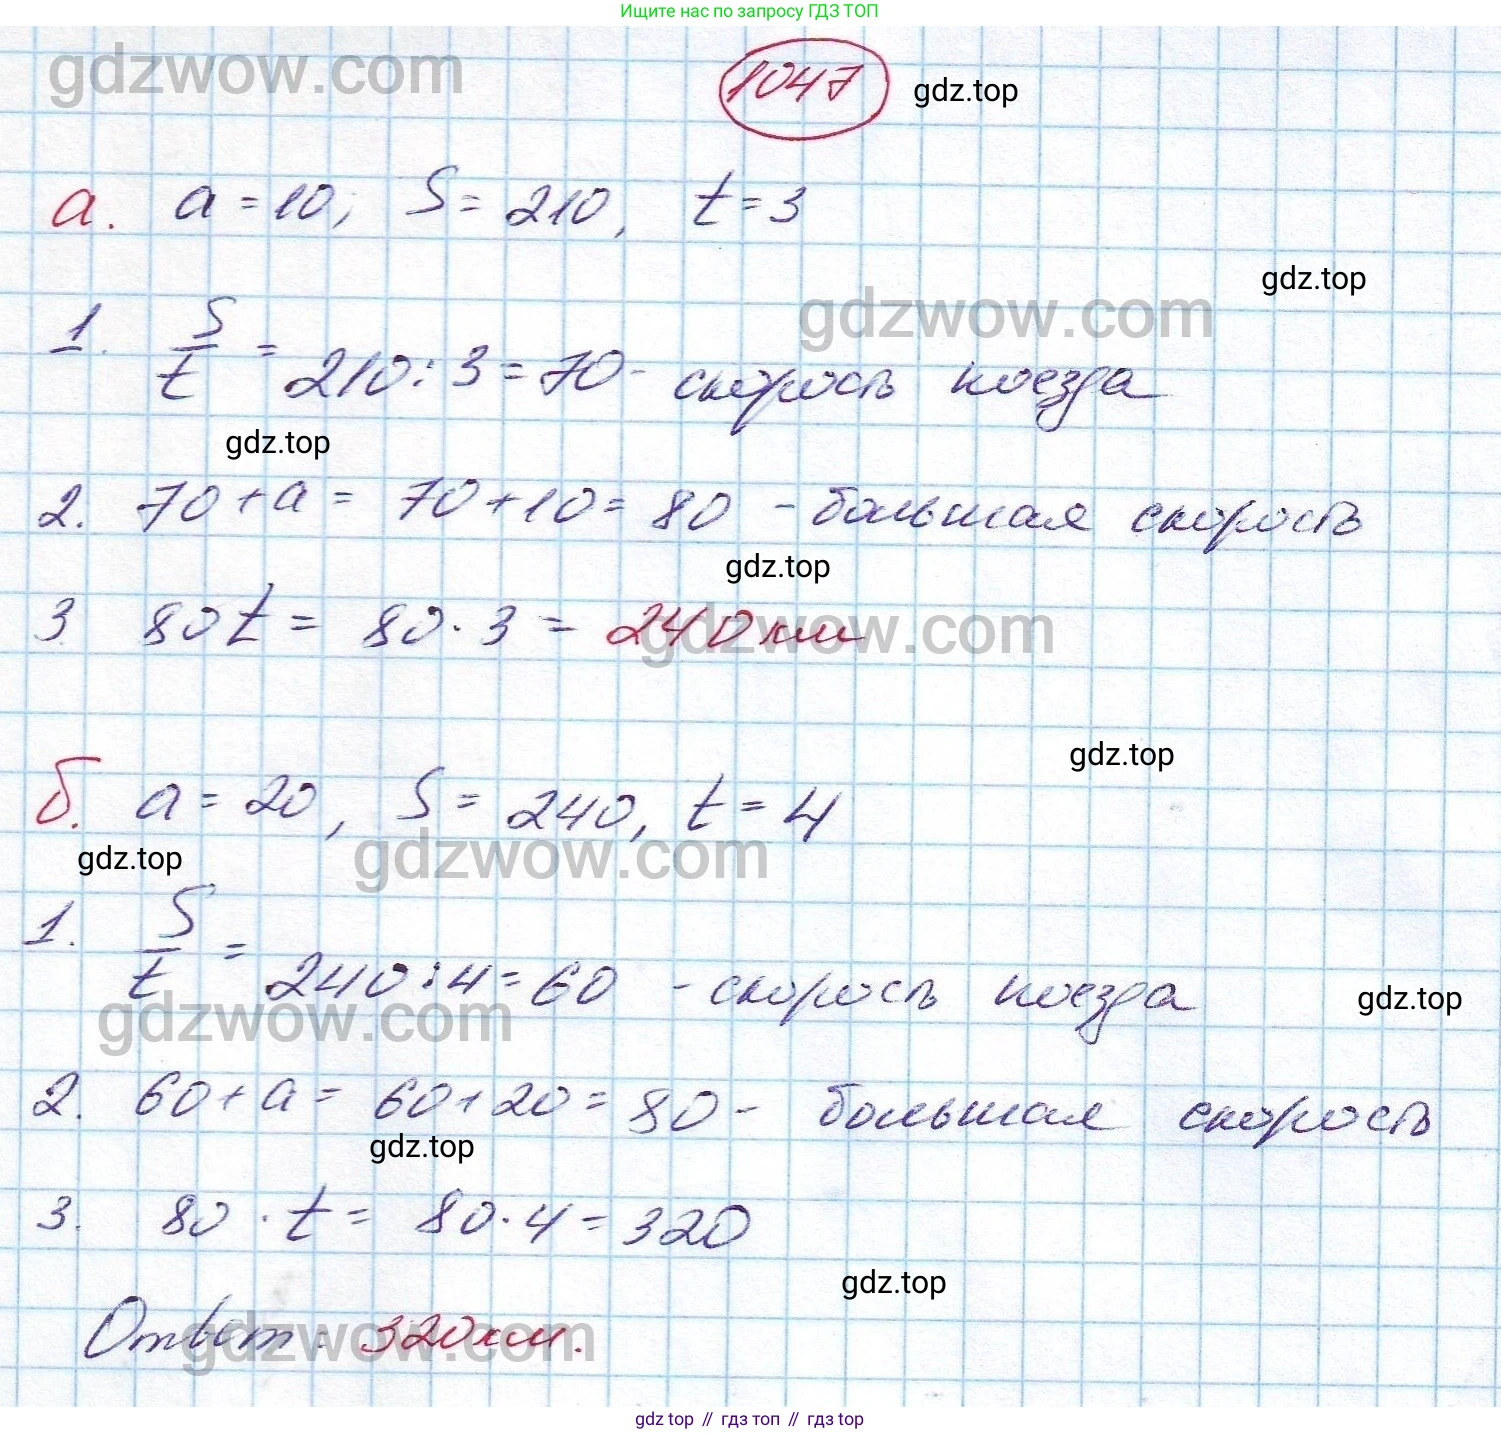 Ищите нас по запросу ГДЗ ТОП
gdzwow.com
1047 gdz.top
а. a = 10; S = 210, t = 3
gdz.top
gdzwow.com
1. S/t = 210 : 3 = 70 - скорость поезда
gdz.top
2. 70 + a = 70 + 10 = 80 - большая скорость
gdz.top
3 80t = 80 · 3 = 240 км
gdzwow.com
gdz.top
б. a = 20, S = 240, t = 4
gdz.top
gdzwow.com
1. S/t = 240 : 4 = 60 - скорость поезда
gdz.top
gdzwow.com
2. 60 + a = 60 + 20 = 80 - большая скорость
gdz.top
3. 80 · t = 80 · 4 = 320
gdz.top
Ответ: 320 км.
gdzwow.com
gdz.top // гдз топ // гдз.top